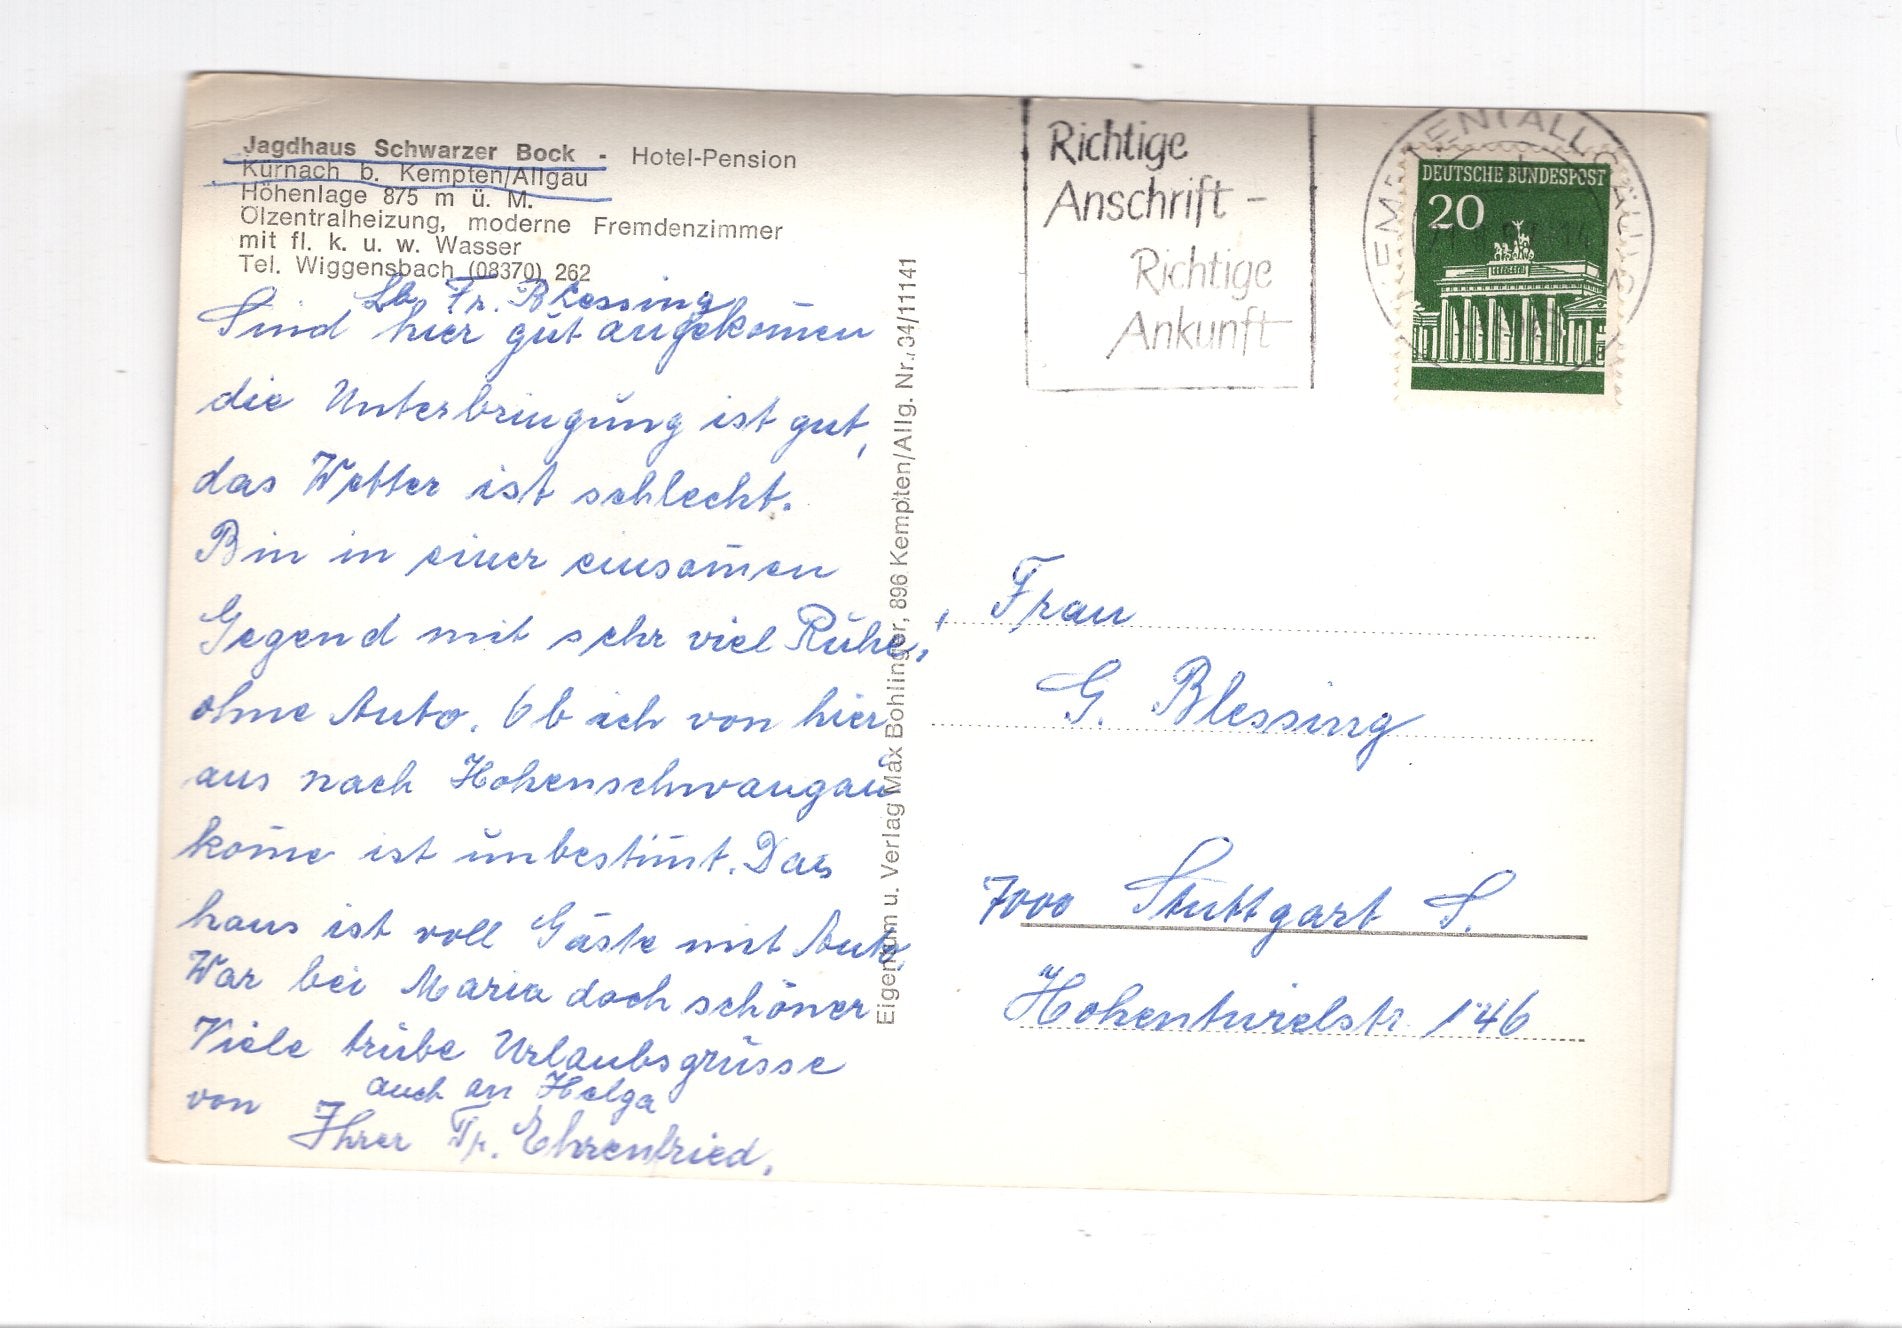 Jagdhaus Schwarzer Bock - Hotel-Pension
Kürnach b. Kempten/Allgäu
Höhenlage 875 m ü. M.
Ölzentralheizung, moderne Fremdenzimmer
mit fl. k. u. w. Wasser
Tel. Wiggensbach (08370) 262
Lb. Fr. Blessing
Sind hier gut angekom̄en
die Unterbringung ist gut,
das Wetter ist schlecht.
Bin in einer einsam̄en
Gegend mit sehr viel Ruhe,
ohne Auto. Ob ich von hier
aus nach Hohenschwangau
kom̄e ist unbestim̄t. Das
haus ist voll Gäste mit Auto,
War bei Maria doch schöner
Viele trübe Urlaubsgrüsse
auch an Helga
von Ihrer Fr. Ehrenfried.
Eigentum u. Verlag Max Bohlinger, 896 Kempten/Allg. Nr. 34/11141
Richtige
Anschrift -
Richtige
Ankunft
KEMPTEN (ALLGÄU) 2
DEUTSCHE BUNDESPOST
20
Frau
G. Blessing
7000 Stuttgart S.
Hohentwielstr. 146